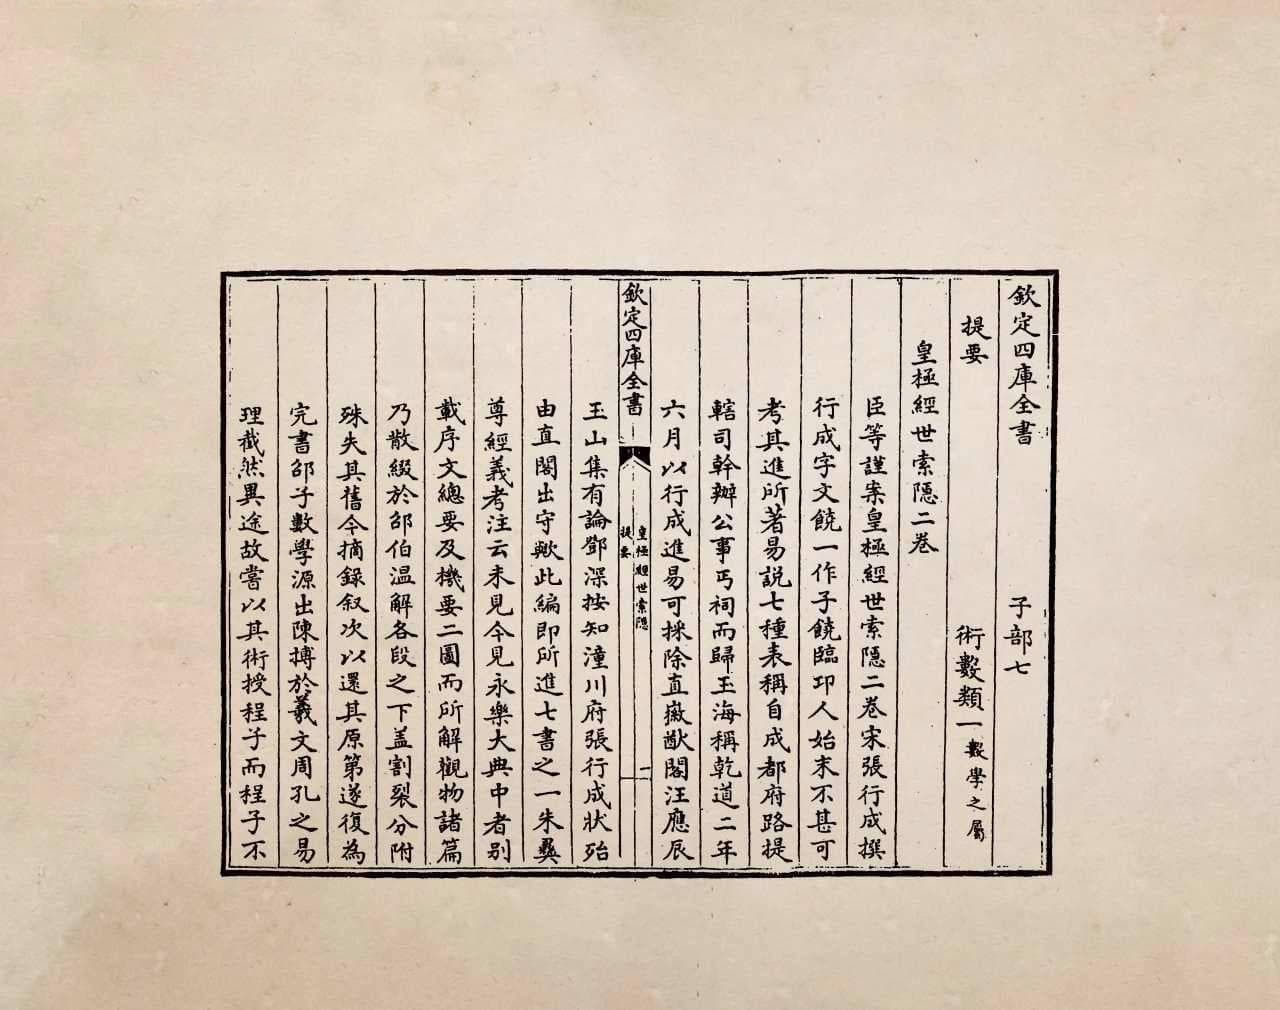 欽定四庫全書 子部七
提要 術數類一數學之屬
皇極經世索隱二卷
臣等謹案皇極經世索隱二卷宋張行成撰
行成字文饒一作子饒臨卭人始末不甚可
考其進所著易說七種表稱自成都府路提
轄司幹辦公事丐祠而歸玉海稱乾道二年
六月以行成進易可採除直徽猷閣汪應辰
欽定四庫全書
皇極經世索隱
提要
一
玉山集有論鄧深按知潼川府張行成狀殆
由直閣出守歟此編即所進七書之一朱彛
尊經義考注云未見今見永樂大典中者别
載序文總要及機要二圖而所解觀物諸篇
乃散綴於邵伯温解各段之下盖割裂分附
殊失其舊今摘録叙次以還其原第遂復為
完書邵子數學源出陳摶於羲文周孔之易
理截然異途故嘗以其術授程子而程子不